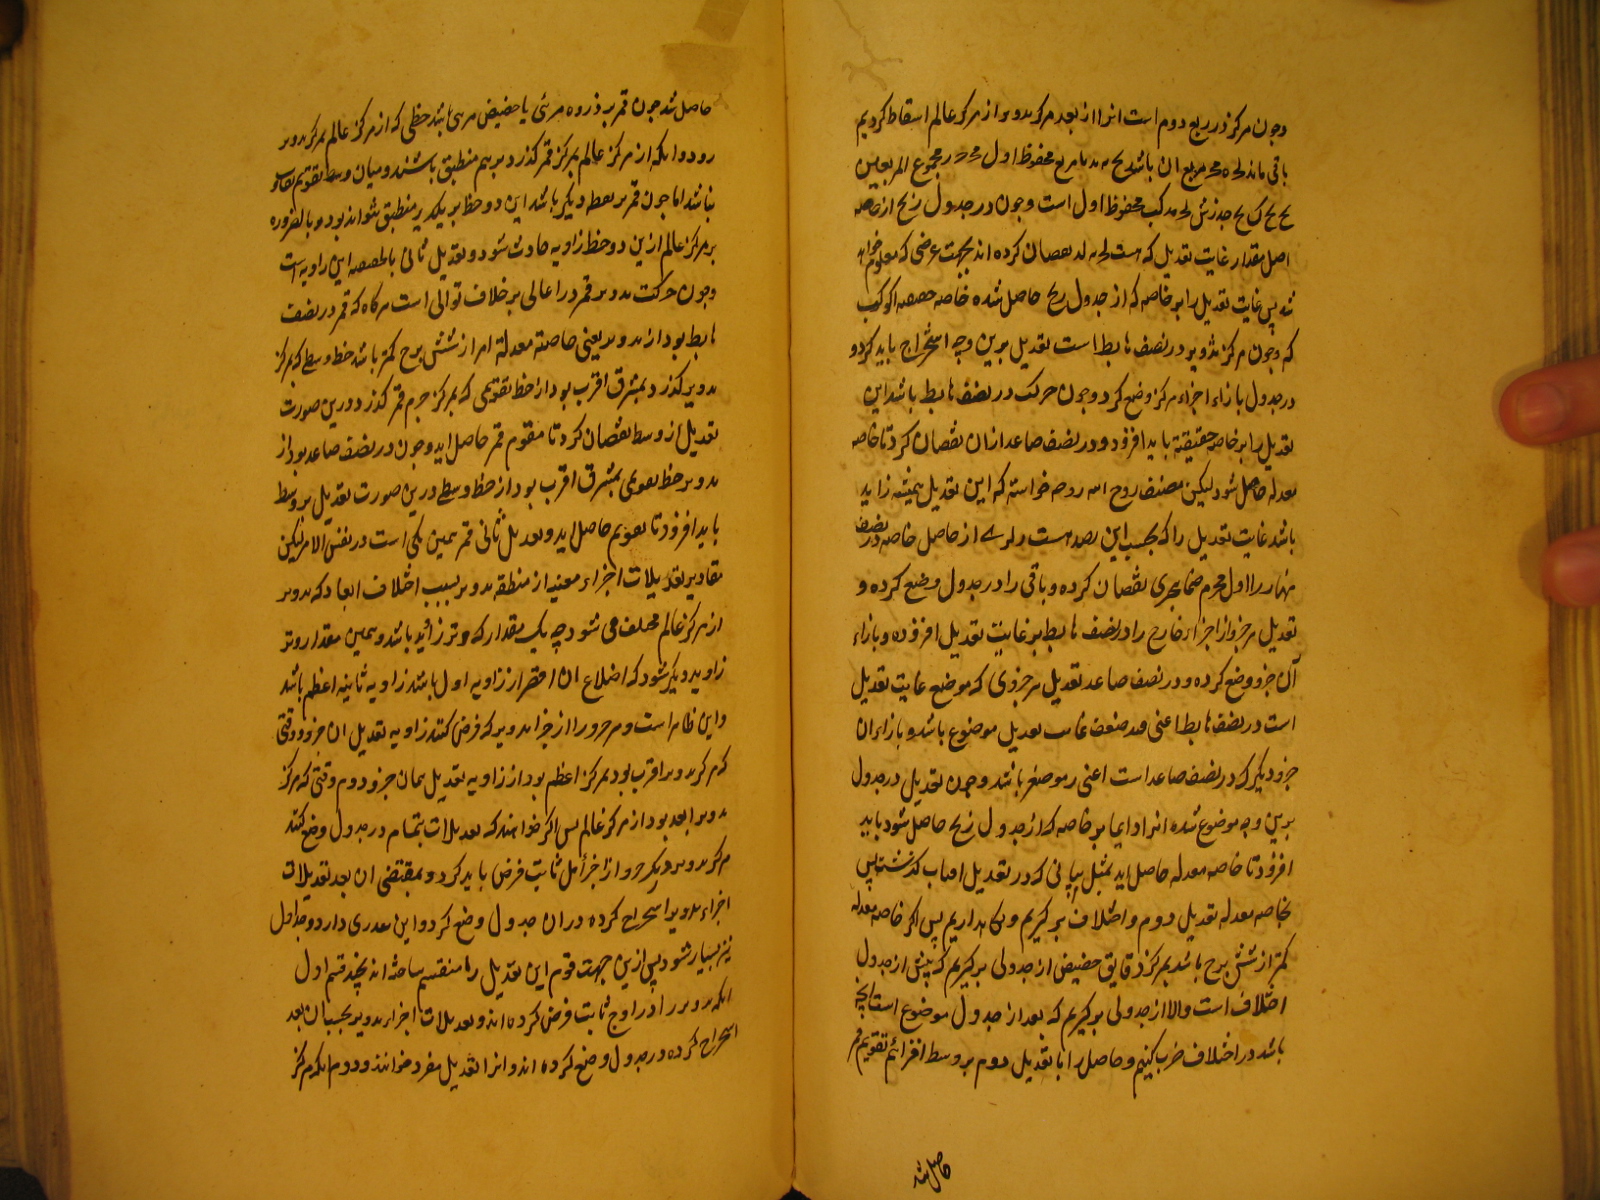 وچون مرکز در ربع دوم است انرا از بعد مرکز تدویر از مرکز عالم اسقاط کردیم
باقی ماند مربع ان باشد با مربع محفوظ اول مجموع المربعین
جذرش محفوظ اول است وچون در جدول زیج از خاصه
اصل مقدار غایت تعدیل که هست نقصان کرده اند بجهت غرضی که معلوم خواهد
شد پس غایت تعدیل را بر خاصه که از جدول زیج حاصل شده خاصه
که وچون مرکز تدویر در نصف هابط است تعدیل برین وجه استخراج باید کرد و
در جدول بازاء اجزاء مرکز وضع کرد وچون حرکت در نصف هابط باشد این
تعدیل را بر خاصه حقیقیه باید افزود و در نصف صاعد ازان نقصان کرد تا خاصه
معدله حاصل شود لیکن مصنف روح الله روحه خواسته که این تعدیل همیشه زاید
باشد غایت تعدیل را که بحسب این رصد است از حاصل خاصه در نصف
نهار اول محرم نقصان کرده و باقی را در جدول وضع کرده و
تعدیل هر جزو از اجزاء خارج را در نصف هابط بر غایت تعدیل افزوده و بازاء
آن جزو وضع کرده و در نصف صاعد تعدیل هر جزوی که موضع غایت تعدیل
است در نصف هابط اعنی غایت تعدیل موضوع باشد و بازاء ان
جزو دیگر که در نصف صاعد است اعنی باشد وچون تعدیل در جدول
برین وجه موضوع شده انرا دایما بر خاصه که از جدول زیج حاصل شود باید
افزود تا خاصه معدله حاصل اید بمثل بیانی که در تعدیل افتاب گذشت پس
بخاصه معدله تعدیل دوم و اختلاف بر گیریم و نگاه داریم پس اگر خاصه معدله
کمتر از شش برج باشد بمرکز دقایق حضیض از جدولی برگیریم که پیش از جدول
اختلاف است والا از جدولی برگیریم که بعد از جدول موضوع است انچه
باشد در اختلاف ضرب کنیم و حاصل را با تعدیل دوم بر وسط افزائیم تقویم قمر
حاصل شد
حاصل شد چون قمر بر ذروه مرئی یا حضیض مرئی باشد خطی که از مرکز عالم بمرکز تدویر
رود و انکه از مرکز عالم بمرکز قمر گذرد برهم منطبق باشند و میان وسط و تقویم تفاوت
نباشد اما چون قمر بر نقطه دیگر باشد این دو خط بر یکدیگر منطبق نتواند بود و بالضروره
بر مرکز عالم ازین دو خط زاویه حادث شود و تعدیل ثانی بالحقیقه این زاویه است
وچون حرکت تدویر قمر در اعالی بر خلاف توالی است هرگاه که قمر در نصف
هابط بود از تدویر یعنی خاصه معدله او از شش برج کمتر باشد خط وسطی که بمرکز
تدویر گذرد بمشرق اقرب بود از خط تقویمی که بمرکز جرم قمر گذرد و درین صورت
تعدیل از وسط نقصان کرد تا مقوم قمر حاصل اید وچون در نصف صاعد بود از
تدویر خط تقویمی بمشرق اقرب بود از خط وسطی و درین صورت تعدیل بر وسط
باید افزود تا تقویم حاصل اید و تعدیل ثانی قمر همین یکی است در نفس الامر لیکن
مقادیر تعدیلات اجزاء معینه از منطقه تدویر بسبب اختلاف ابعاد که تدویر
از مرکز عالم مختلف می شود چه یک مقدار که وتر زاویه باشد و همین مقدار وتر
زاویه دیگر شود که اضلاع ان اقصر از زاویه اول باشد زاویه ثانیه اعظم باشد
واین ظاهر است و هر جزو را از اجزا تدویر که فرض کنند زاویه تعدیل ان جزو وقتی
که مرکز تدویر اقرب بود بمرکز اعظم بود از زاویه تعدیل همان جزو دوم وقتی که مرکز
تدویر ابعد بود از مرکز عالم پس اگر خواهند که تعدیلات بتمام در جدول وضع کنند
مرکز تدویر در هر جزو از اجزاء ثابت فرض باید کرد و بمقتضی ان بعد تعدیلات
اجزاء تدویر استخراج کرده در ان جدول وضع کرد و این تعذری دارد و جداول
نیز بسیار شود پس ازین جهت قوم این تعدیل را منقسم ساخته اند بچند قسم اول
انکه تدویر را در اوج ثابت فرض کرده اند و تعدیلات اجزاء تدویر بحسب ان بعد
استخراج کرده در جدول وضع کرده اند و انرا تعدیل مفرد خوانند و دوم انکه مرکز